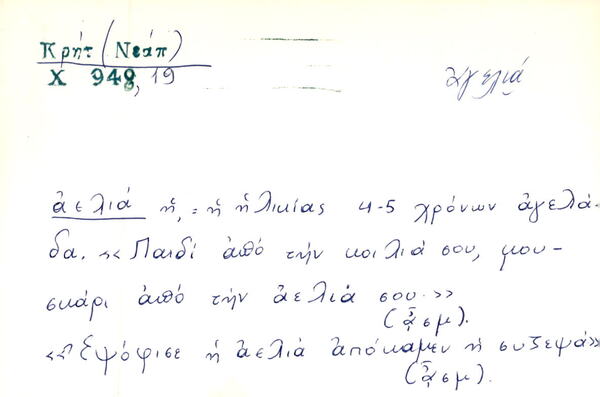 Κρήτ (Νεάπ)
Χ 948, 19
ἀγελιά
ἀελιά ἡ, = ἡ ἡλικίας 4-5 χρόνων ἀγελά-
δα. «Παιδί ἀπό τήν κοιλιά σου, μου-
σκάρι ἀπό τήν ἀελιά σου.»
(ᾆσμ).
«Ἐψόφισε ἡ ἀελιά ἀπόκαμεν ἡ συζεψά»
(ᾆσμ).